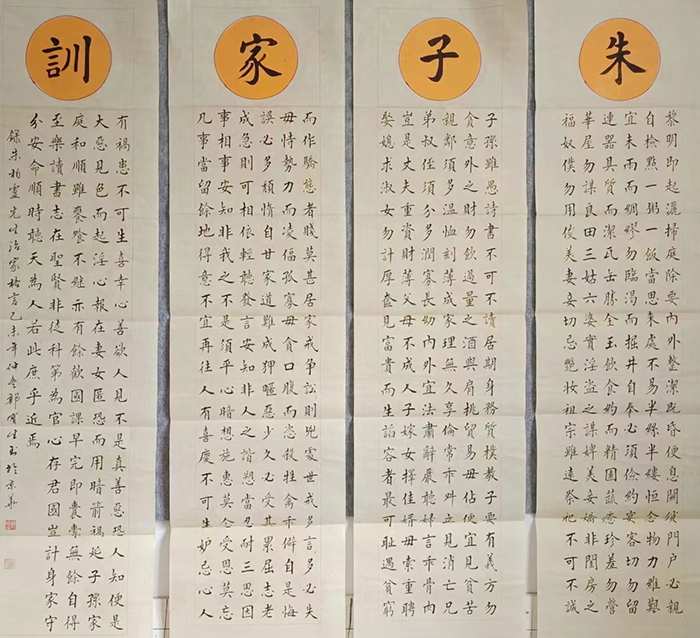 朱
黎明即起灑掃庭除要內外整潔既昏便息關鎖門戶必親
自檢點一粥一飯當思來處不易半絲半縷恒念物力維艱
宜未雨而綢繆勿臨渴而掘井自奉必須儉約宴客切勿留
連器具質而潔瓦缶勝金玉飲食約而精園蔬愈珍羞勿營
華屋勿謀良田三姑六婆實淫盜之媒婢美妾嬌非閨房之
福奴僕勿用俊美妻妾切忌艷妝祖宗雖遠祭祀不可不誠
子
子孫雖愚詩書不可不讀居期身務質樸教子要有義方勿
貪意外之財勿飲過量之酒與肩挑貿易毋佔便宜見貧苦
親鄰須多溫恤刻薄成家理無久享倫常乖舛立見消亡兄
弟叔侄須分多潤寡長幼內外宜法肅辭嚴聽婦言乖骨肉
豈是丈夫重資財薄父母不成人子嫁女擇佳婿毋索重聘
娶媳求淑女勿計厚奩見富貴而生諂容者最可恥遇貧窮
家
而作驕態者賤莫甚居家戒爭訟則兇處世戒多言多必失
毋恃勢力而凌偪孤寡毋貪口腹而恣殺牲禽乖僻自是悔
誤必多頹惰自甘家道難成狎暱惡少久必受其累屈志老
成急則可相依輕聽發言安知非人之譖愬當忍耐三思因
事相爭安知非我之不是須平心暗想施惠莫念受恩莫忘
凡事當留餘地得意不宜再往人有喜慶不可生妒忌心人
訓
有禍患不可生喜幸心善欲人見不是真善惡恐人知便是
大惡見色而起淫心報在妻女匿怨而用暗箭禍延子孫家
庭和順雖饔飧不繼亦有餘歡國課早完即囊橐無餘自得
至樂讀書志在聖賢非徒科第為官心存君國豈計身家守
分安命順時聽天為人若此庶乎近焉
錄朱柏廬先生治家格言乙未年仲冬生書於京華